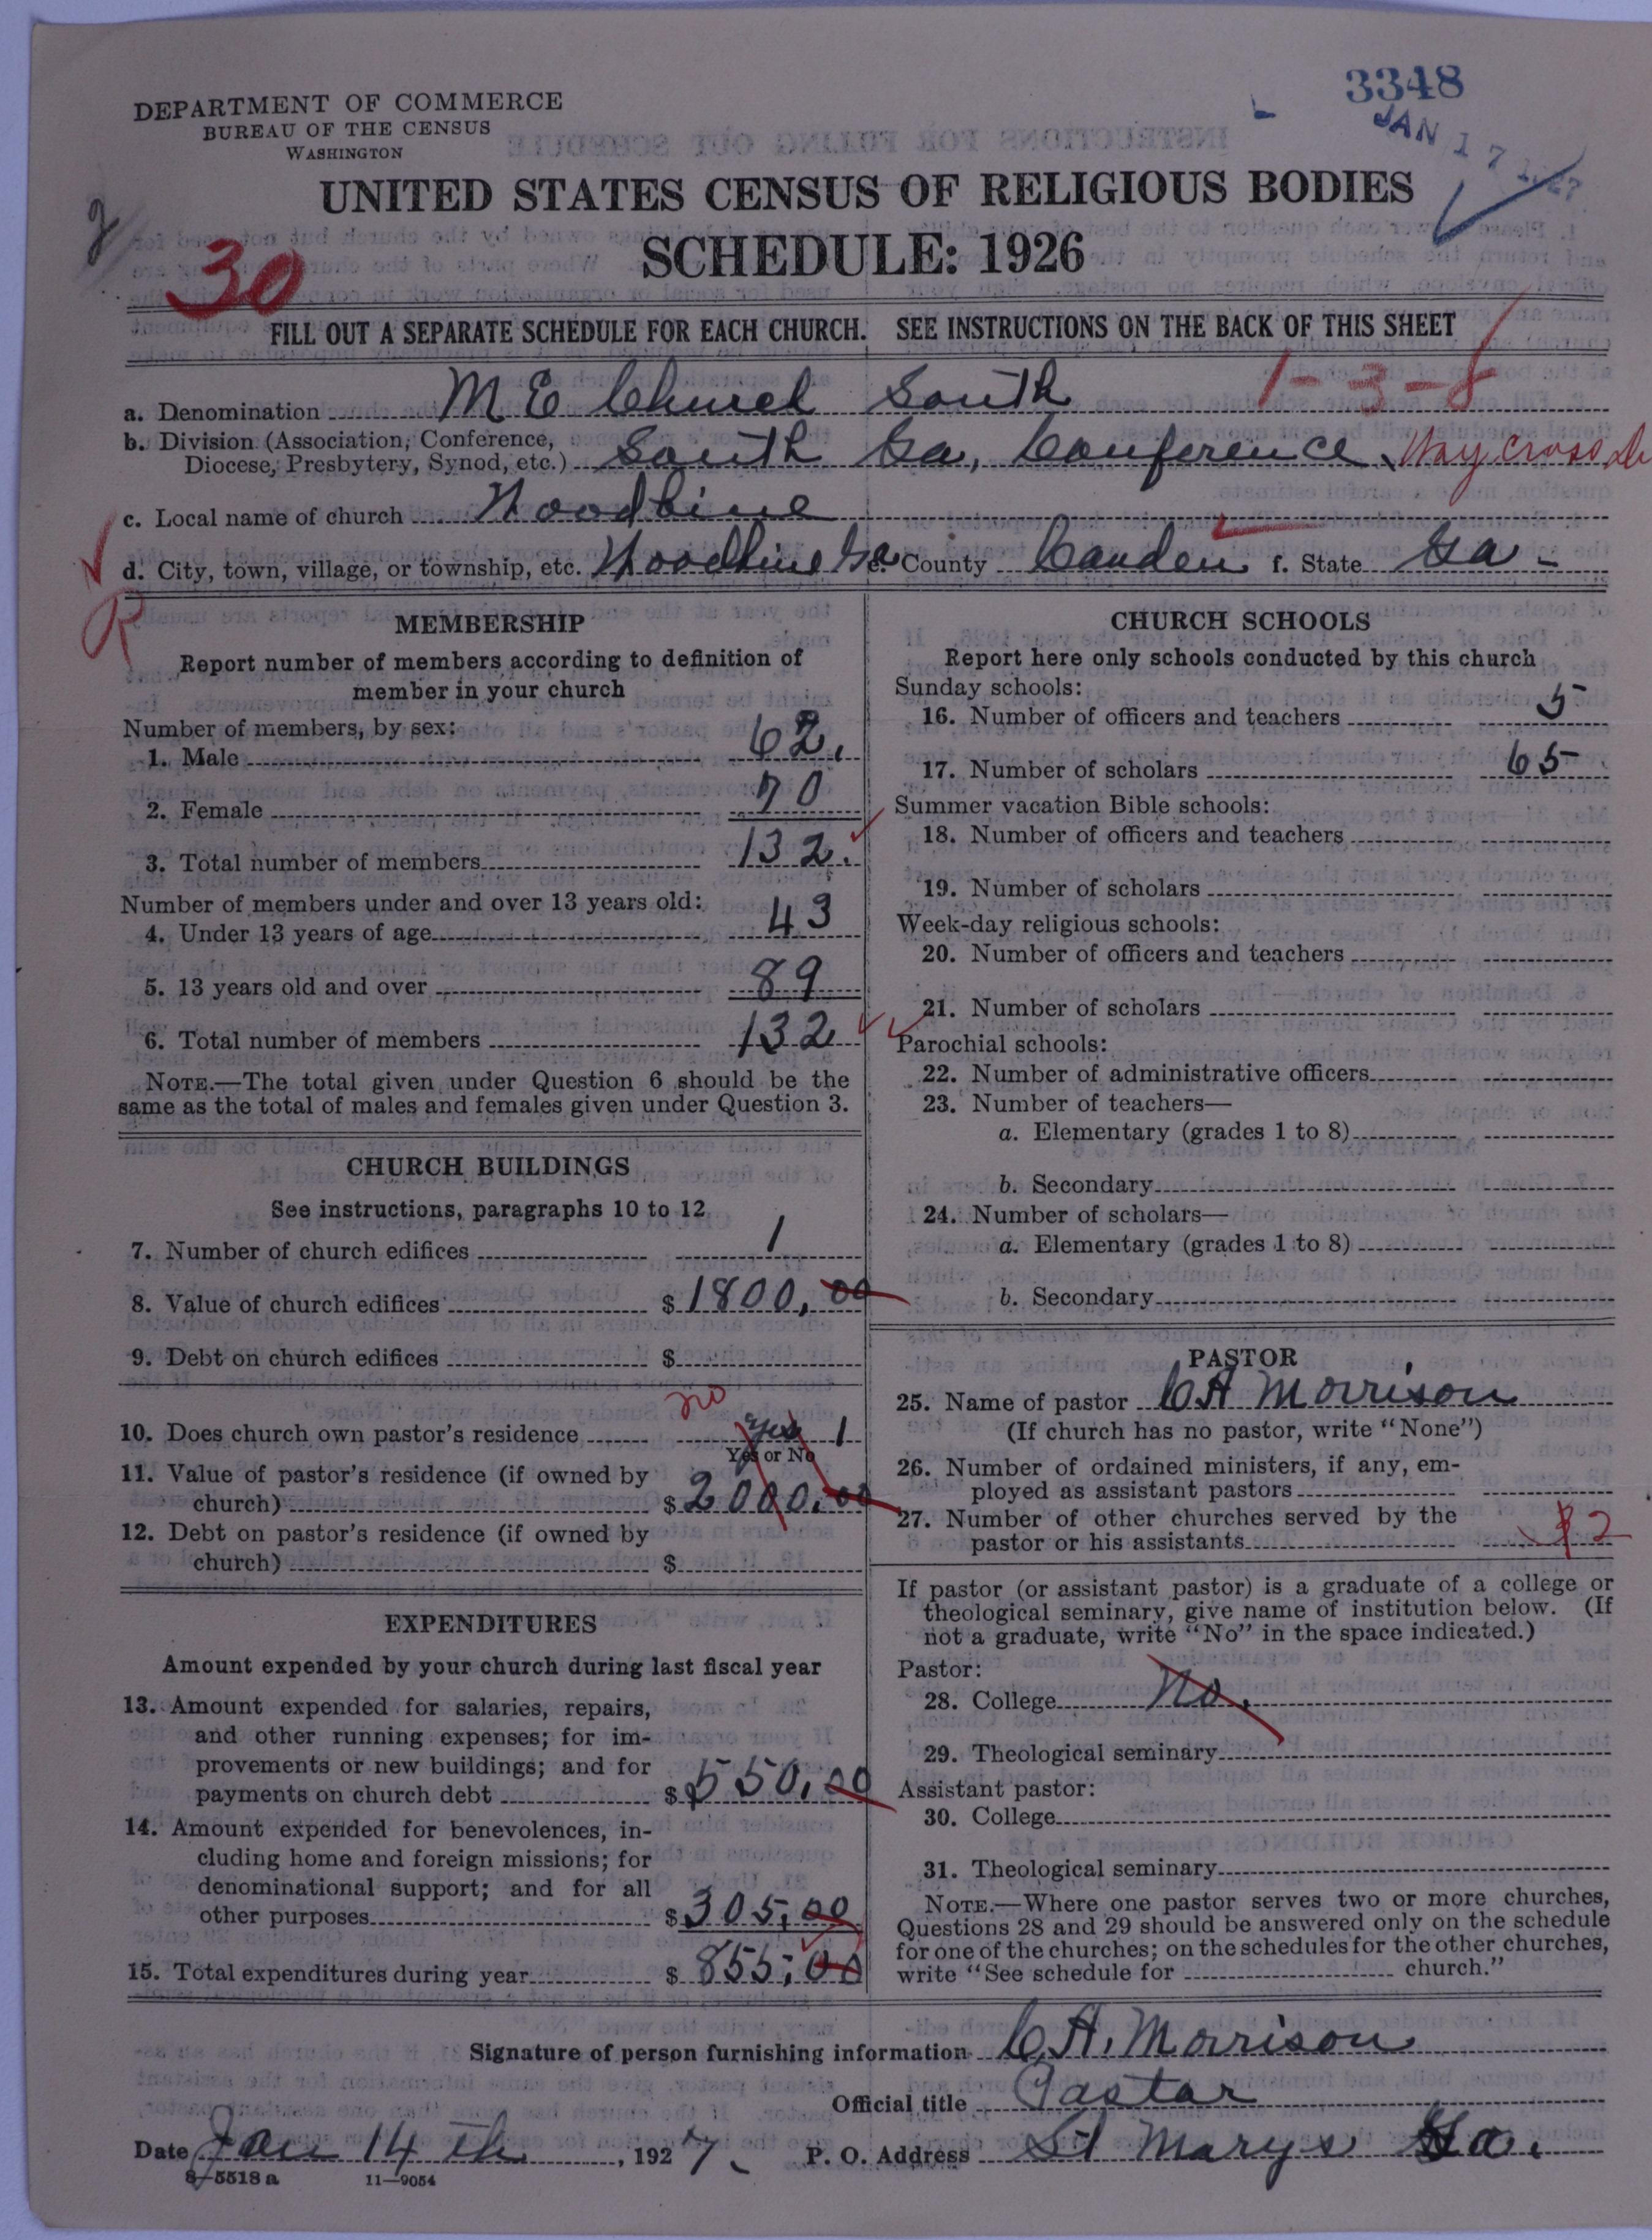 3348
JAN 17 1927
DEPARTMENT OF COMMERCE
BUREAU OF THE CENSUS
WASHINGTON
UNITED STATES CENSUS OF RELIGIOUS BODIES
SCHEDULE: 1926
2
30
FILL OUT A SEPARATE SCHEDULE FOR EACH CHURCH. SEE INSTRUCTIONS ON THE BACK OF THIS SHEET
1-3-8
a. Denomination M E Church South
b. Division (Association, Conference,
Diocese, Presbytery, Synod, etc.) South Ga, Conference, Waycross
c. Local name of church Woodbine
d. City, town, village, or township, etc. Woodbine Ga e. County Camden f. State Ga-
R
MEMBERSHIP
Report number of members according to definition of
member in your church
Number of members, by sex:
1. Male 62.
2. Female 70
3. Total number of members 132.
Number of members under and over 13 years old:
4. Under 13 years of age 43
5. 13 years old and over 89
6. Total number of members 132
NOTE.—The total given under Question 6 should be the
same as the total of males and females given under Question 3.
CHURCH BUILDINGS
See instructions, paragraphs 10 to 12
7. Number of church edifices 1
8. Value of church edifices $ 1800,00
9. Debt on church edifices $
no
10. Does church own pastor's residence yes 1
Yes or No
11. Value of pastor's residence (if owned by
church) $ 2000.00
12. Debt on pastor's residence (if owned by
church) $
EXPENDITURES
Amount expended by your church during last fiscal year
13. Amount expended for salaries, repairs,
and other running expenses; for im-
provements or new buildings; and for
payments on church debt $ 550,00
14. Amount expended for benevolences, in-
cluding home and foreign missions; for
denominational support; and for all
other purposes $ 305,00
15. Total expenditures during year $ 855,00
CHURCH SCHOOLS
Report here only schools conducted by this church
Sunday schools:
16. Number of officers and teachers 5
17. Number of scholars 65
Summer vacation Bible schools:
18. Number of officers and teachers
19. Number of scholars
Week-day religious schools:
20. Number of officers and teachers
21. Number of scholars
Parochial schools:
22. Number of administrative officers
23. Number of teachers—
a. Elementary (grades 1 to 8)
b. Secondary
24. Number of scholars—
a. Elementary (grades 1 to 8)
b. Secondary
PASTOR
25. Name of pastor C A Morrison
(If church has no pastor, write "None")
26. Number of ordained ministers, if any, em-
ployed as assistant pastors
27. Number of other churches served by the
pastor or his assistants 2
If pastor (or assistant pastor) is a graduate of a college or
theological seminary, give name of institution below. (If
not a graduate, write "No" in the space indicated.)
Pastor:
28. College No.
29. Theological seminary
Assistant pastor:
30. College
31. Theological seminary
NOTE.—Where one pastor serves two or more churches,
Questions 28 and 29 should be answered only on the schedule
for one of the churches; on the schedules for the other churches,
write "See schedule for church."
Signature of person furnishing information C. A. Morrison
Official title Pastor
Date Jan 14 th, 1927. P. O. Address St Marys Ga.
8-5518 a 11-9054